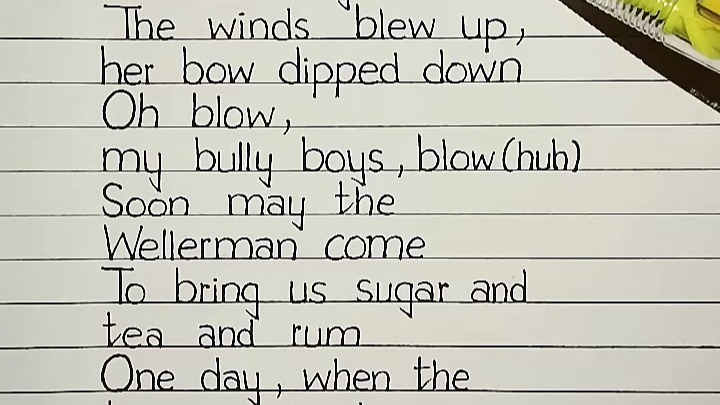 The winds blew up,
her bow dipped down
Oh blow,
my bully boys, blow (huh)
Soon may the
Wellerman come
To bring us sugar and
tea and rum
One day, when the